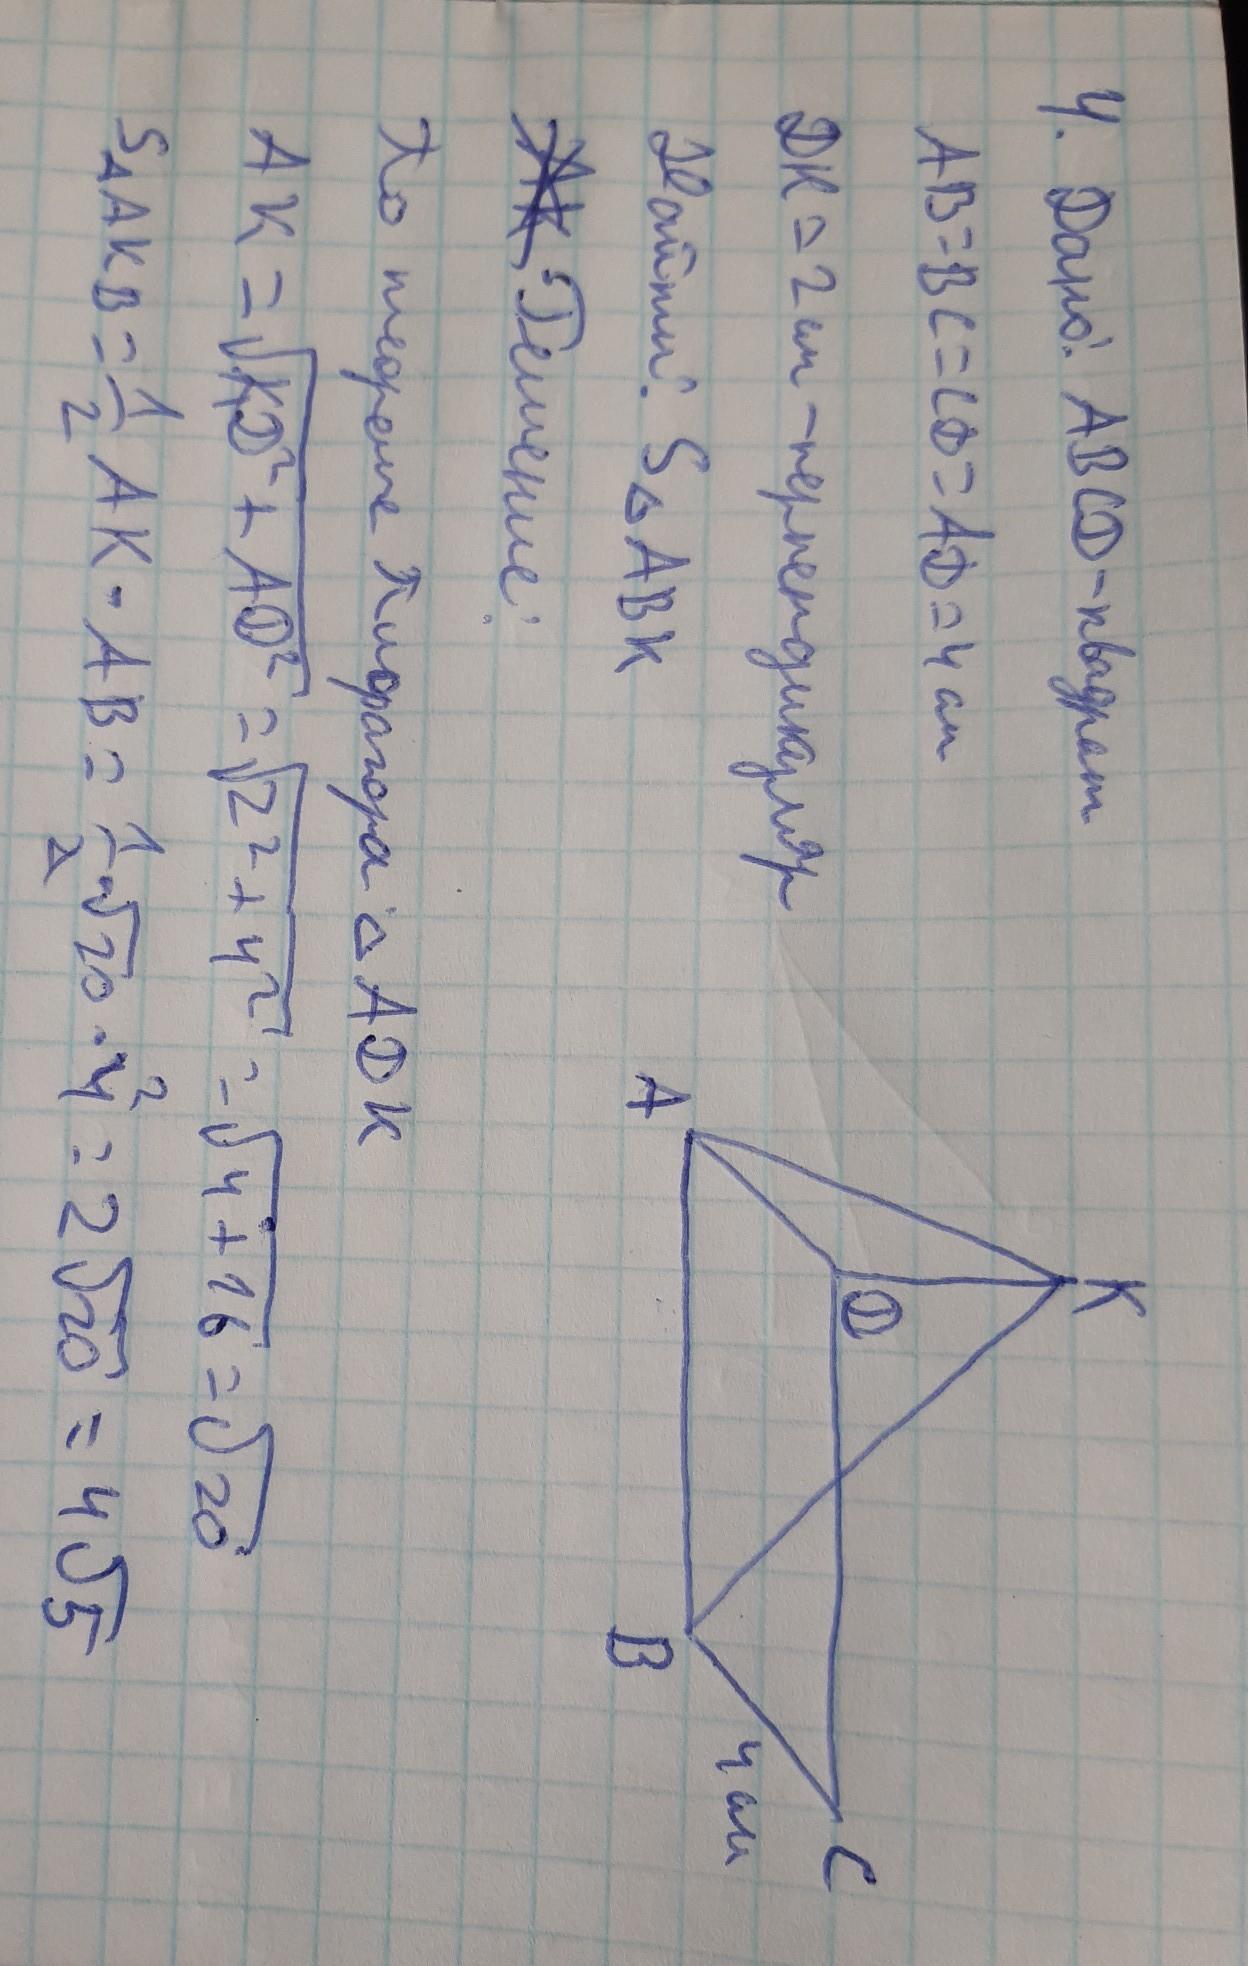 4. Дано: ABCD-квадрат
AB=BC=CD=AD=4 см
DK=2 см-перпендикуляр
Найти: S△ABK
Решение:
По теореме Пифагора △ADK
AK=√KD²+AD² = √2²+4² = √4+16 = √20
S△AKB = 1/2 AK · AB = 1/2 · √20 · 4 2 = 2√20 = 4√5
K
A
D
B
C
4 см